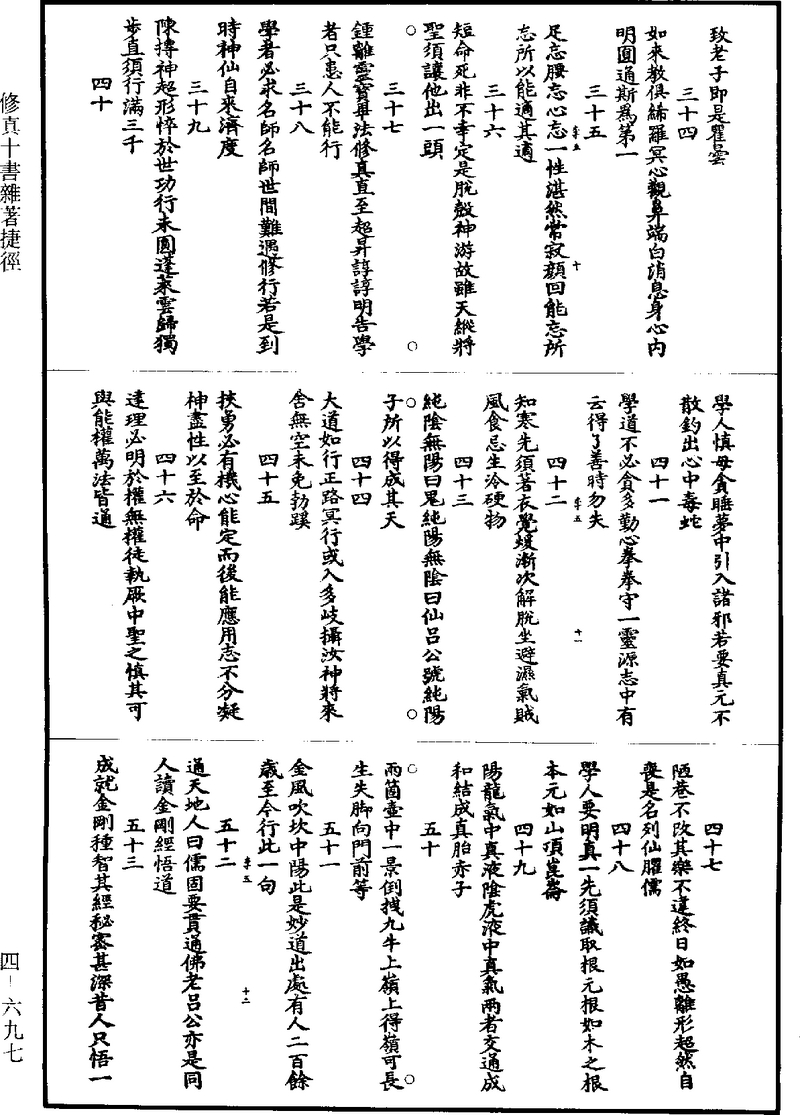 修真十書雜著捷徑
致老子即是瞿曇
三十四
如來教俱絺羅冥心觀鼻端白消息身心內
明圓通斯爲第一
三十五
足忘腰忘心忘一性湛然常寂顔回能忘所
忘所以能適其適
三十六
短命死非不幸定是脫殼神游故雖天縱將
聖須讓他出一頭
三十七
鍾離靈寶畢法修真直至超昇諄諄明告學
者只患人不能行
三十八
學者必求名師名師世間難遇修行若是到
時神仙自來濟度
三十九
陳摶神超形悴於世功行未圓蓬萊雲歸獨
步直須行滿三千
四十
學人慎毋貪睡夢中引入諸邪若要真元不
散釣出心中毒蛇
四十一
學道不必貪多勤心拳拳守一靈源志中有
云得了善時勿失
四十二
知寒先須著衣覺煖漸次解脫坐避濕氣賊
風食忌生冷硬物
四十三
純陰無陽曰鬼純陽無陰曰仙吕公號純陽
子所以得成其天
四十四
大道如行正路冥行或入多岐攝汝神將來
舍無空未免勃蹊
四十五
挾勇必有機心能定而後能應用志不分凝
神盡性以至於命
四十六
達理必明於權無權徒執厥中聖之慎其可
與能權萬法皆通
四十七
陋巷不改其樂不違終日如愚離形超然自
喪是名列仙臞儒
四十八
學人要明真一先須識取根元根如木之根
本元如山項崑崙
四十九
陽龍氣中真液陰虎液中真氣兩者交通成
和結成真胎赤子
五十
兩箇壺中一景倒拽九牛上嶺上得嶺可長
生失脚向門前等
五十一
金風吹坎中陽此是妙道出處有人二百餘
歲至今行此一句
五十二
通天地人曰儒固要貫通佛老吕公亦是同
人讀金剛經悟道
五十三
成就金剛種智其經秘密甚深昔人只悟一
四-六九七